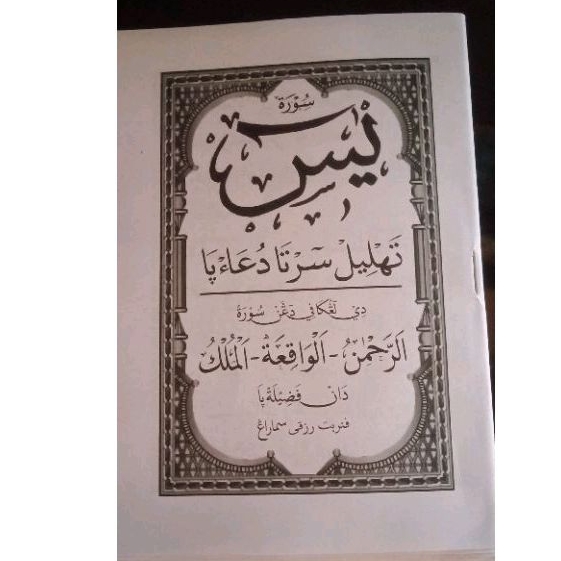 سُوْرَة
يٰسٓ
تَهْلِيْل سَرْتَا دُعَاءْ پَا
دِيْ لَڠْكَافِيْ دَڠَنْ سُوْرَة
اَلرَّحْمٰنُ - اَلْوَاقِعَةُ - اَلْمُلْكُ
دَانْ فَضِيْلَةْ پَا
فنربت رزقى سماراڠ